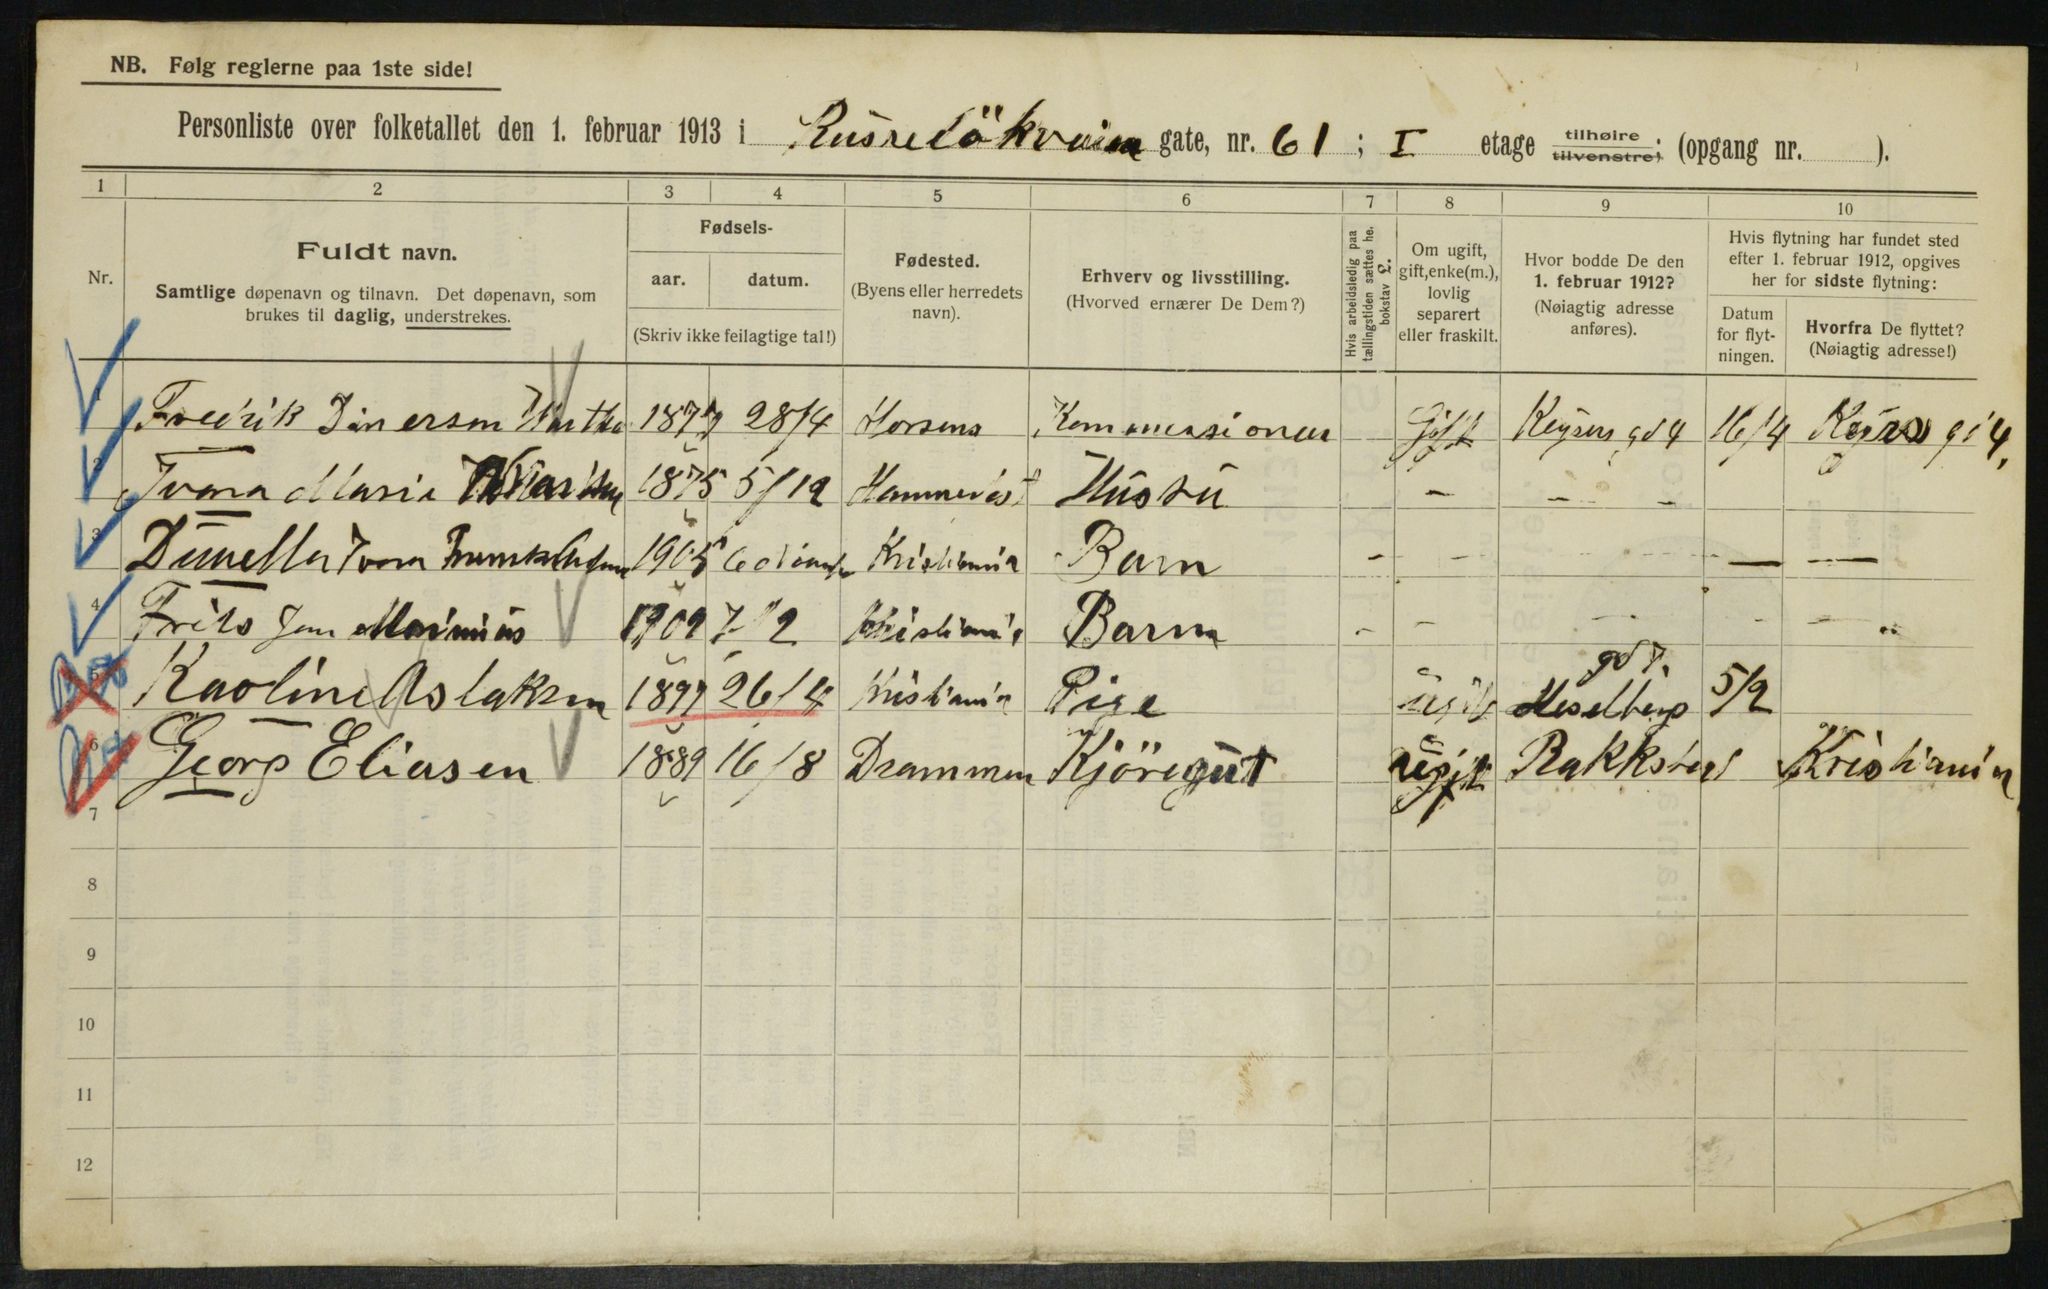 NB. Følg reglerne paa 1ste side!
Personliste over folketallet den 1. februar 1913 i Russelökveien gate, nr. 61; I etage tilhøire tilvenstre; (opgang nr. ).
1 2 3 4 5 6 7 8 9 10
Nr.
Fuldt navn.
Samtlige døpenavn og tilnavn. Det døpenavn, som
brukes til daglig, understrekes.
Fødsels-
aar. datum.
(Skriv ikke feilagtige tal!)
Fødested.
(Byens eller herredets
navn).
Erhverv og livsstilling.
(Hvorved ernærer De Dem?)
Hvis arbeidsledig paa
tællingstiden sættes he.
bokstav L.
Om ugift,
gift, enke(m.),
lovlig
separert
eller fraskilt.
Hvor bodde De den
1. februar 1912?
(Nøiagtig adresse
anføres).
Hvis flytning har fundet sted
efter 1. februar 1912, opgives
her for sidste flytning:
Datum
for flyt-
ningen.
Hvorfra De flyttet?
(Nøiagtig adresse!)
1 Fredrik 1877 28/4 Horsens Kommensioner Gift Keysers gd 4 16/4 Keysrs gd 4,
2 Ivara Maria 1875 5/12 Hammerfest Hustu - - -
3 Ivara 1905 6 Kristiania Barn - - - - - -
4 Frits Jan Marinius 1909 7/2 Kristiania Barn - - - - "
5 Kaoline Aslaksen 1897 26/4 Kristiania Pige ugift Heselberg gd 7. 5/2
6 Georg Eliasen 1889 16/8 Drammen Kjöregut ugift Bakksted Kristiania
7
8
9
10
11
12